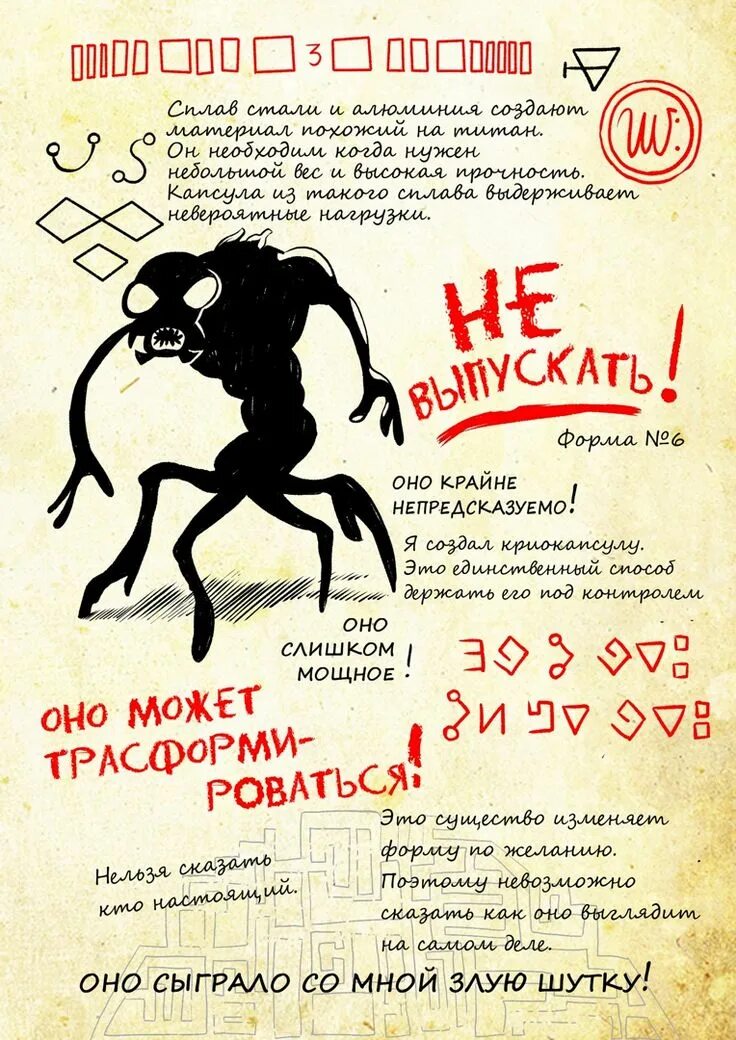 3
Сплав стали и алюминия создают
материал похожий на титан.
Он необходим когда нужен
небольшой вес и высокая прочность.
Капсула из такого сплава выдерживает
невероятные нагрузки.
НЕ
ВЫПУСКАТЬ!
Форма №6
ОНО КРАЙНЕ
НЕПРЕДСКАЗУЕМО!
Я создал криокапсулу.
Это единственный способ
держать его под контролем
ОНО
СЛИШКОМ
МОЩНОЕ!
ОНО МОЖЕТ
ТРАСФОРМИ-
РОВАТЬСЯ!
Это существо изменяет
форму по желанию.
Поэтому невозможно
сказать как оно выглядит
на самом деле.
Нельзя сказать
кто настоящий.
ОНО СЫГРАЛО СО МНОЙ ЗЛУЮ ШУТКУ!